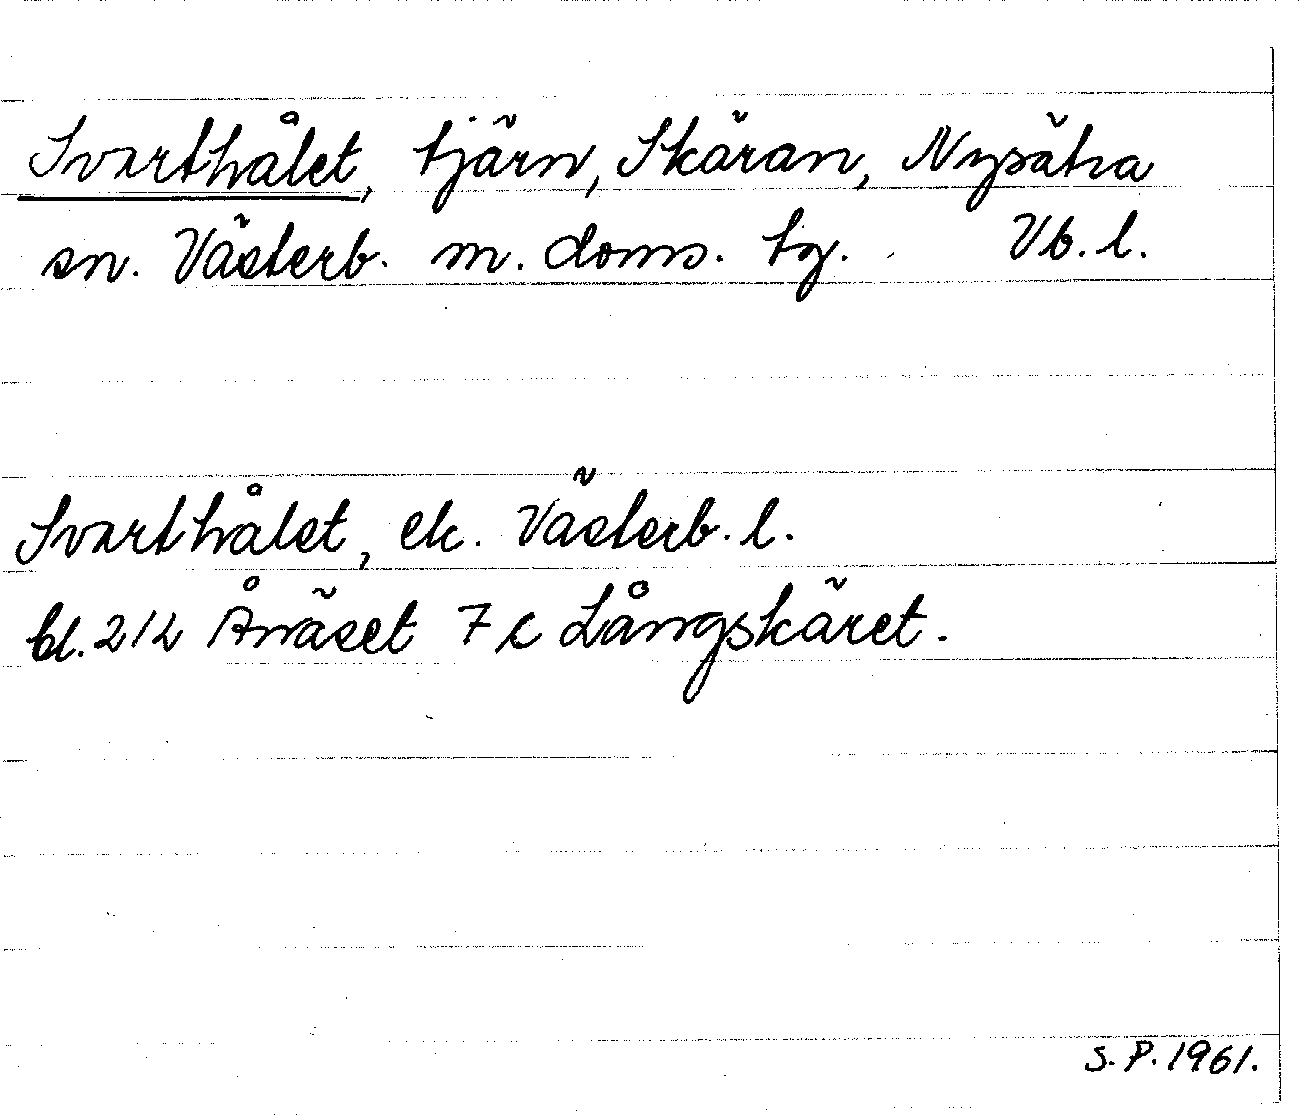 Svarthålet, tjärn, Skäran, Nysätra
sn. Västerb. m. doms. tg. Vb. l.
Svarthålet, ek. Västerb. l.
bl. 212 Ånäset 7 c Långskäret.
S. P. 1961.